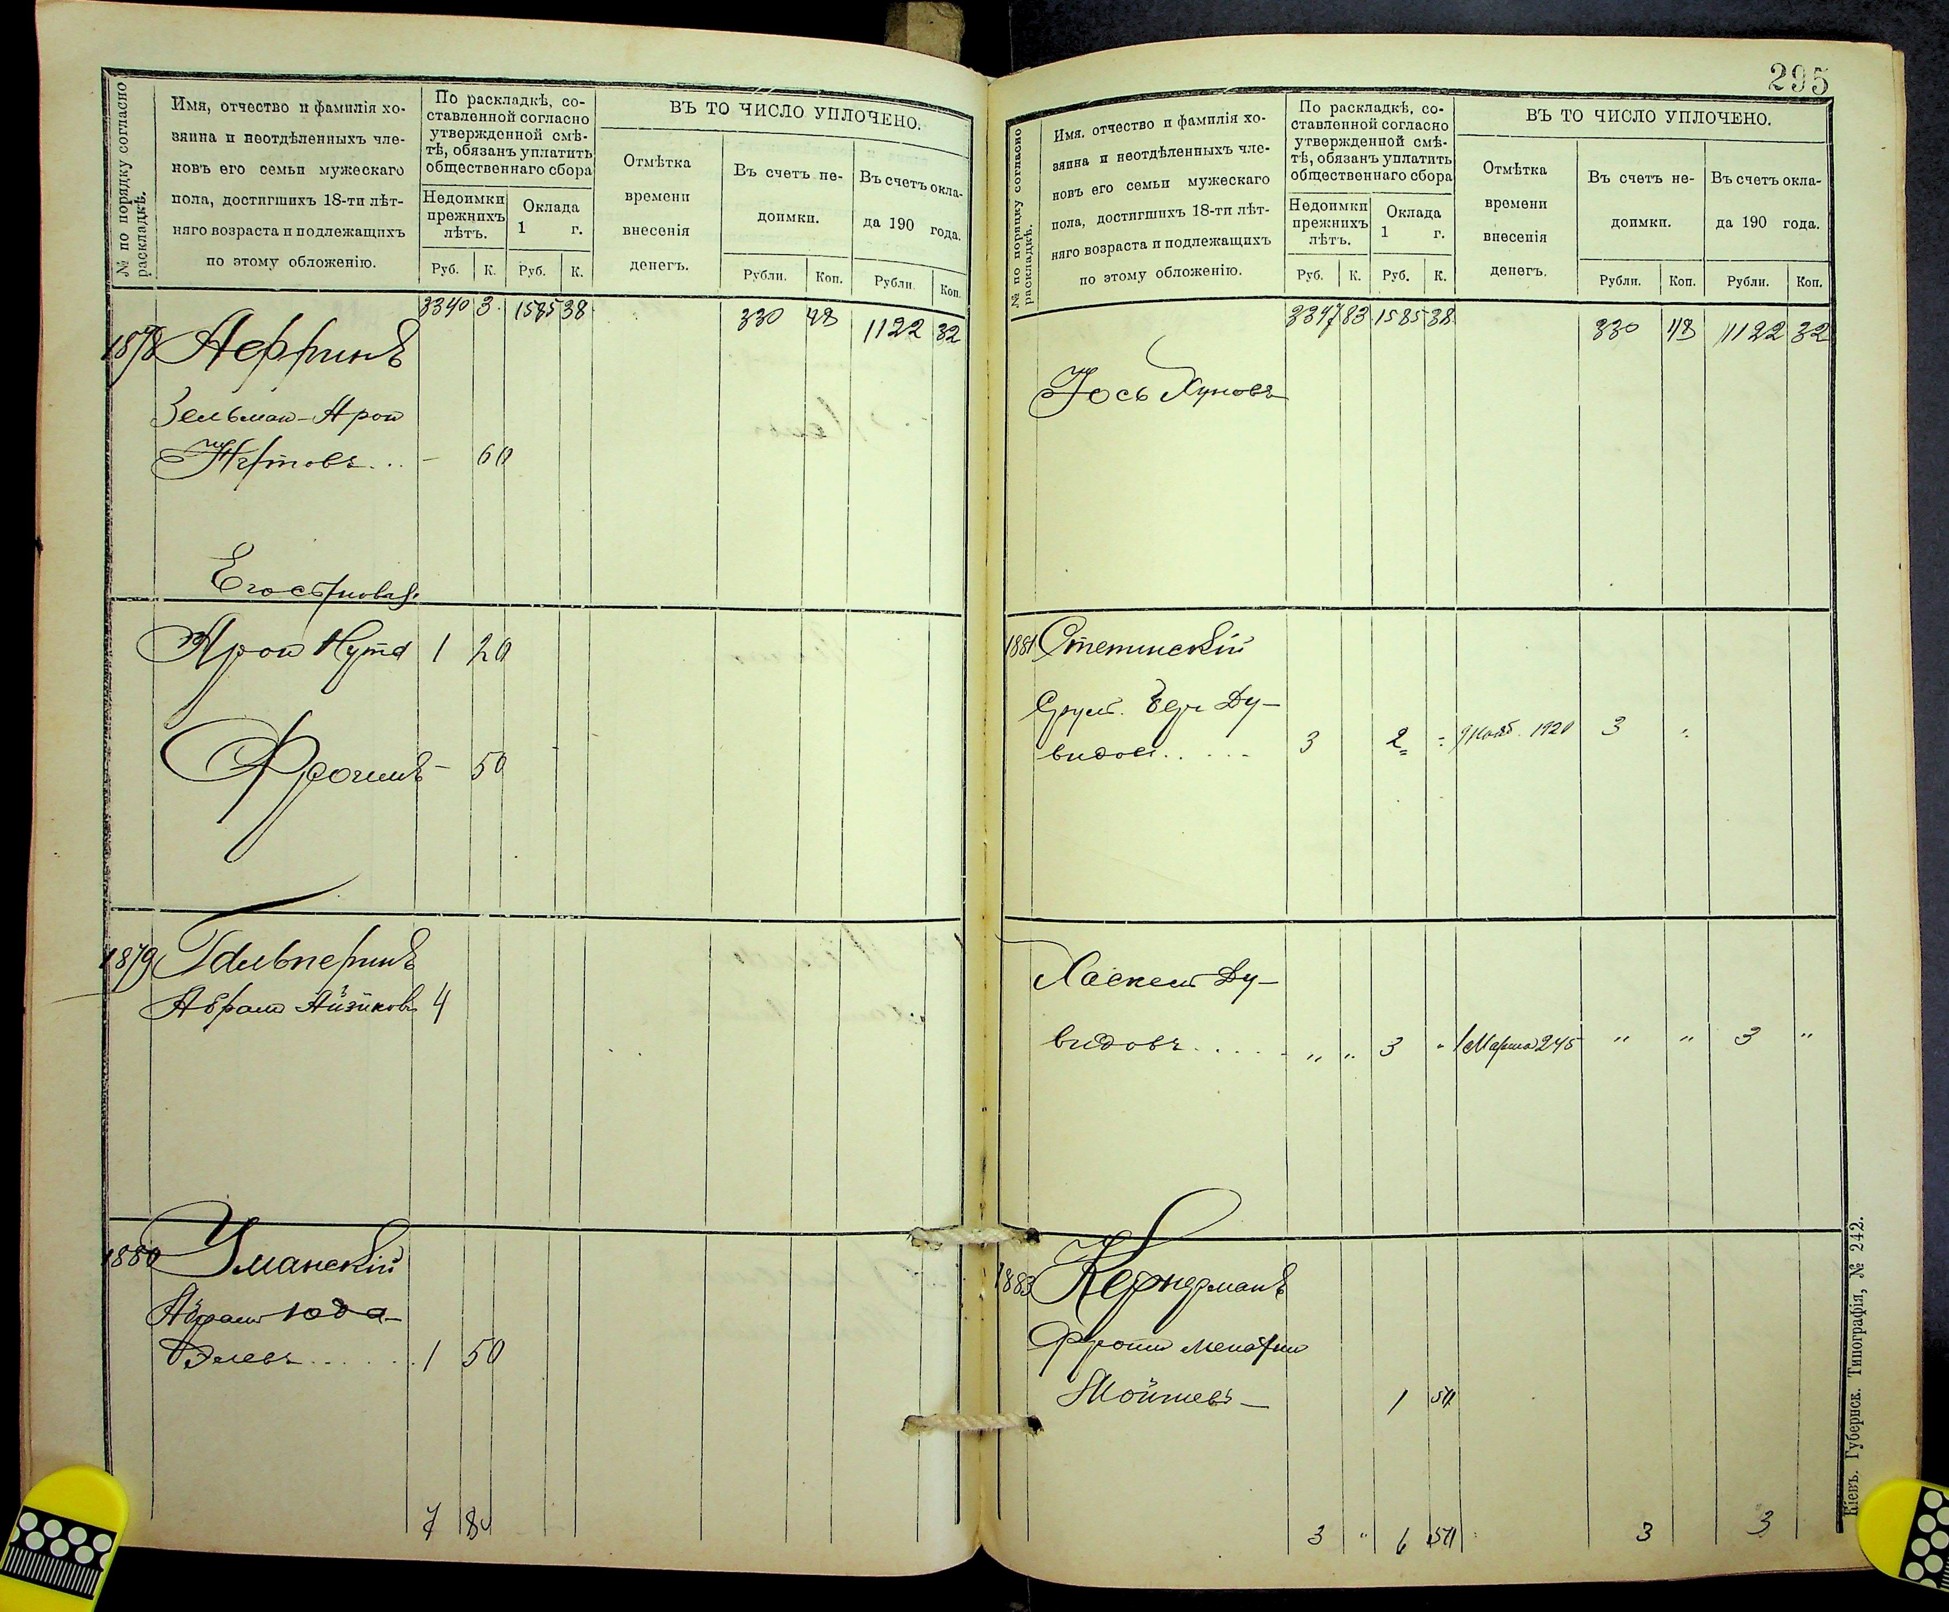 № по порядку согласно раскладкѣ.
Имя, отчество и фамилія хо-
зяина и неотдѣленныхъ чле-
новъ его семьи мужескаго
пола, достигшихъ 18-ти лѣт-
няго возраста и подлежащихъ
по этому обложенію.
По раскладкѣ, со-
ставленной согласно
утвержденной смѣ-
тѣ, обязанъ уплатить
общественнаго сбора
Недоимки
прежнихъ
лѣтъ.
Оклада
1 г.
Руб. К. Руб. К.
ВЪ ТО ЧИСЛО УПЛОЧЕНО.
Отмѣтка
времени
внесенія
денегъ.
Въ счетъ не-
доимки.
Въ счетъ окла-
да 190 года.
Рубли. Коп. Рубли Коп.
3340 3 1585 38 330 48 1122 32
1878
Зельман-Арон
60
Арон Нута 1 20
50
1879 Гальперинъ
Абрам Айзиковъ 4
1880 Уманскій
Абрам Юда-
Элевъ 1 50
7 80
295
№ по порядку согласно раскладкѣ.
Имя, отчество и фамилія хо-
зяина и неотдѣленныхъ чле-
новъ его семьи мужескаго
пола, достигшихъ 18-ти лѣт-
няго возраста и подлежащихъ
по этому обложенію.
По раскладкѣ, со-
ставленной согласно
утвержденной смѣ-
тѣ, обязанъ уплатить
общественнаго сбора
Недоимки
прежнихъ
лѣтъ.
Оклада
1 г.
Руб. К. Руб. К.
ВЪ ТО ЧИСЛО УПЛОЧЕНО.
Отмѣтка
времени
внесенія
денегъ.
Въ счетъ не-
доимки.
Въ счетъ окла-
да 190 года.
Рубли. Коп. Рубли. Коп.
3347 83 1585 38 330 48 1122 32
Іось
1881 Стетинскій
Сруль Бер Ду-
видов 3 2 " 1920 3 "
Хаскель Ду-
видовъ " " 3 " 1 Марта 245 " " 3 "
1883 Кернерманъ
Мойшевъ 1 50
3 " 6 50 3 3
Кіевъ. Губернск. Типографія, № 242.